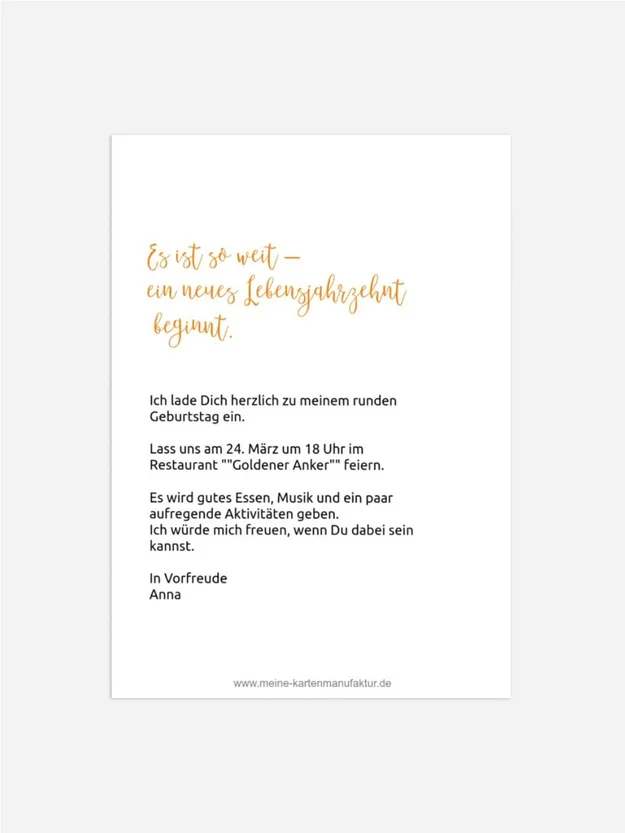 Es ist so weit –
ein neues Lebensjahrzehnt
beginnt.
Ich lade Dich herzlich zu meinem runden
Geburtstag ein.
Lass uns am 24. März um 18 Uhr im
Restaurant ""Goldener Anker"" feiern.
Es wird gutes Essen, Musik und ein paar
aufregende Aktivitäten geben.
Ich würde mich freuen, wenn Du dabei sein
kannst.
In Vorfreude
Anna
www.meine-kartenmanufaktur.de